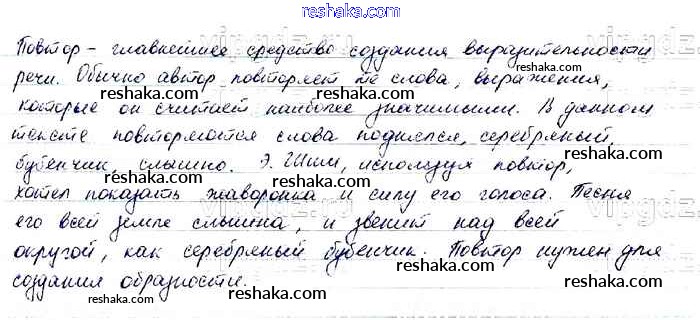 reshaka.com
Повтор - главнейшее средство создания выразительности
речи. Обычно автор повторяет те слова, выражения,
которые он считает наиболее значимыми. В данном
тексте повторяются слова поднялся, серебряный,
бубенчик слышно. Э. Шим, используя повтор,
хотел показать жаворонка и силу его голоса. Песня
его всей земле слышна, и звенит над всей
округой, как серебряный бубенчик. Повтор нужен для
создания образности.